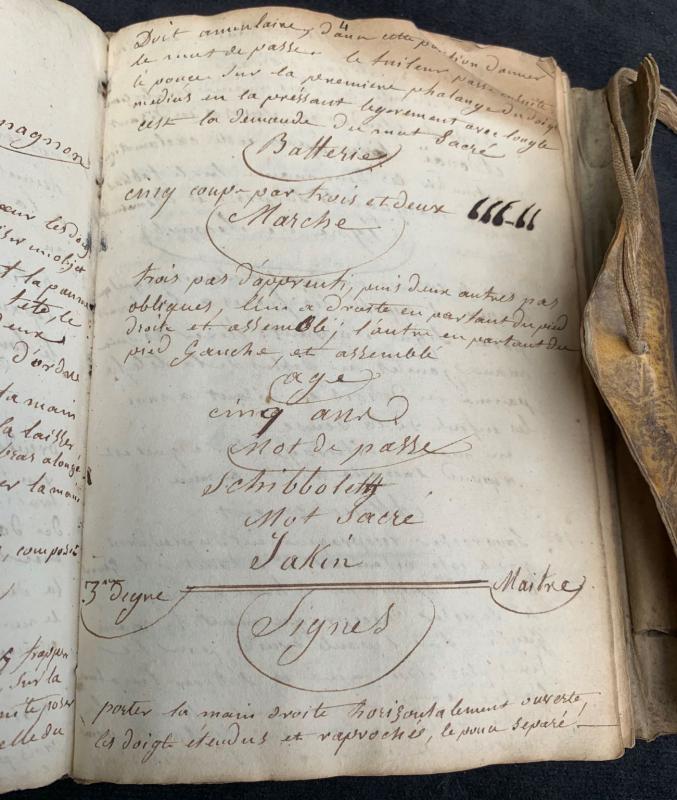 magnon
les doig
un objet
la paume
tete, le
deux
d'ordre
la main
la laisser
bras alongé
la main
, composé
frapper
, sur la
poser
elle du
Doit annulaire, dans cette position donner
le mot de passe, le tuileur passe ensuite
le pouce sur la premiére phalange du doigt
médius en la préssant legerement avec l'ongle
c'est la demande du mot Sacré
Batterie
cinq coups par trois et deux
Marche
trois pas d'apprenti, puis deux autres pas
obliques, l'un a droite en partant du pied
droit et assemblé; l'autre en partant du
pied Gauche, et assemblé
age
cinq ans
Mot de passe
Schibboleth
Mot Sacré
Jakin
3me degre Maitre
Signes
porter la main droite horizontalement ouverte,
les doigts etendus et raprochés, le pouce separé